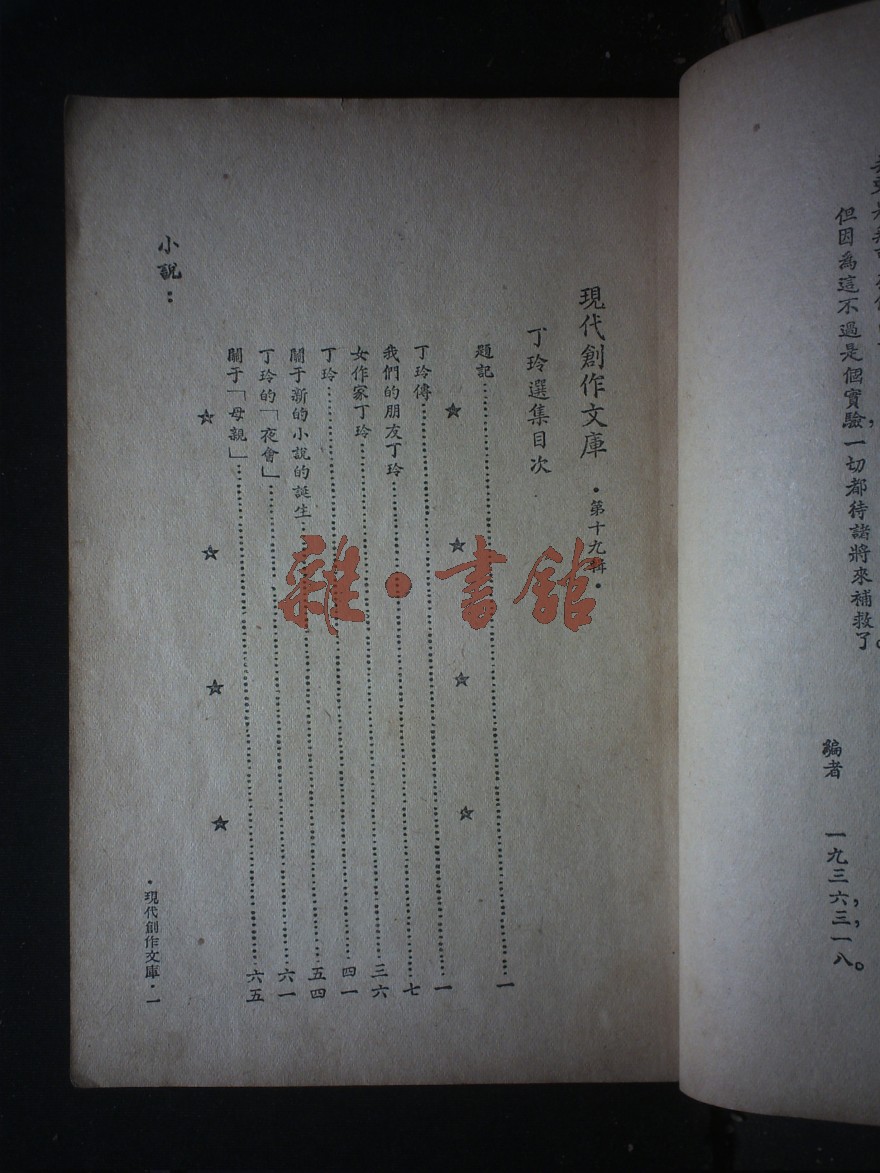 但因為這不過是個實驗,一切都待諸將來補救了。
編者 一九三六,三,一八。
現代創作文庫 •第十九輯•
丁玲選集目次
題記……一
☆ ☆ ☆ ☆
丁玲傳……一
我們的朋友丁玲……七
女作家丁玲……三六
丁玲……四一
關于新的小說的誕生……五四
丁玲的「夜會」……六一
關于「母親」……六五
☆ ☆ ☆ ☆
小說：
•現代創作文庫•一
雜•書館